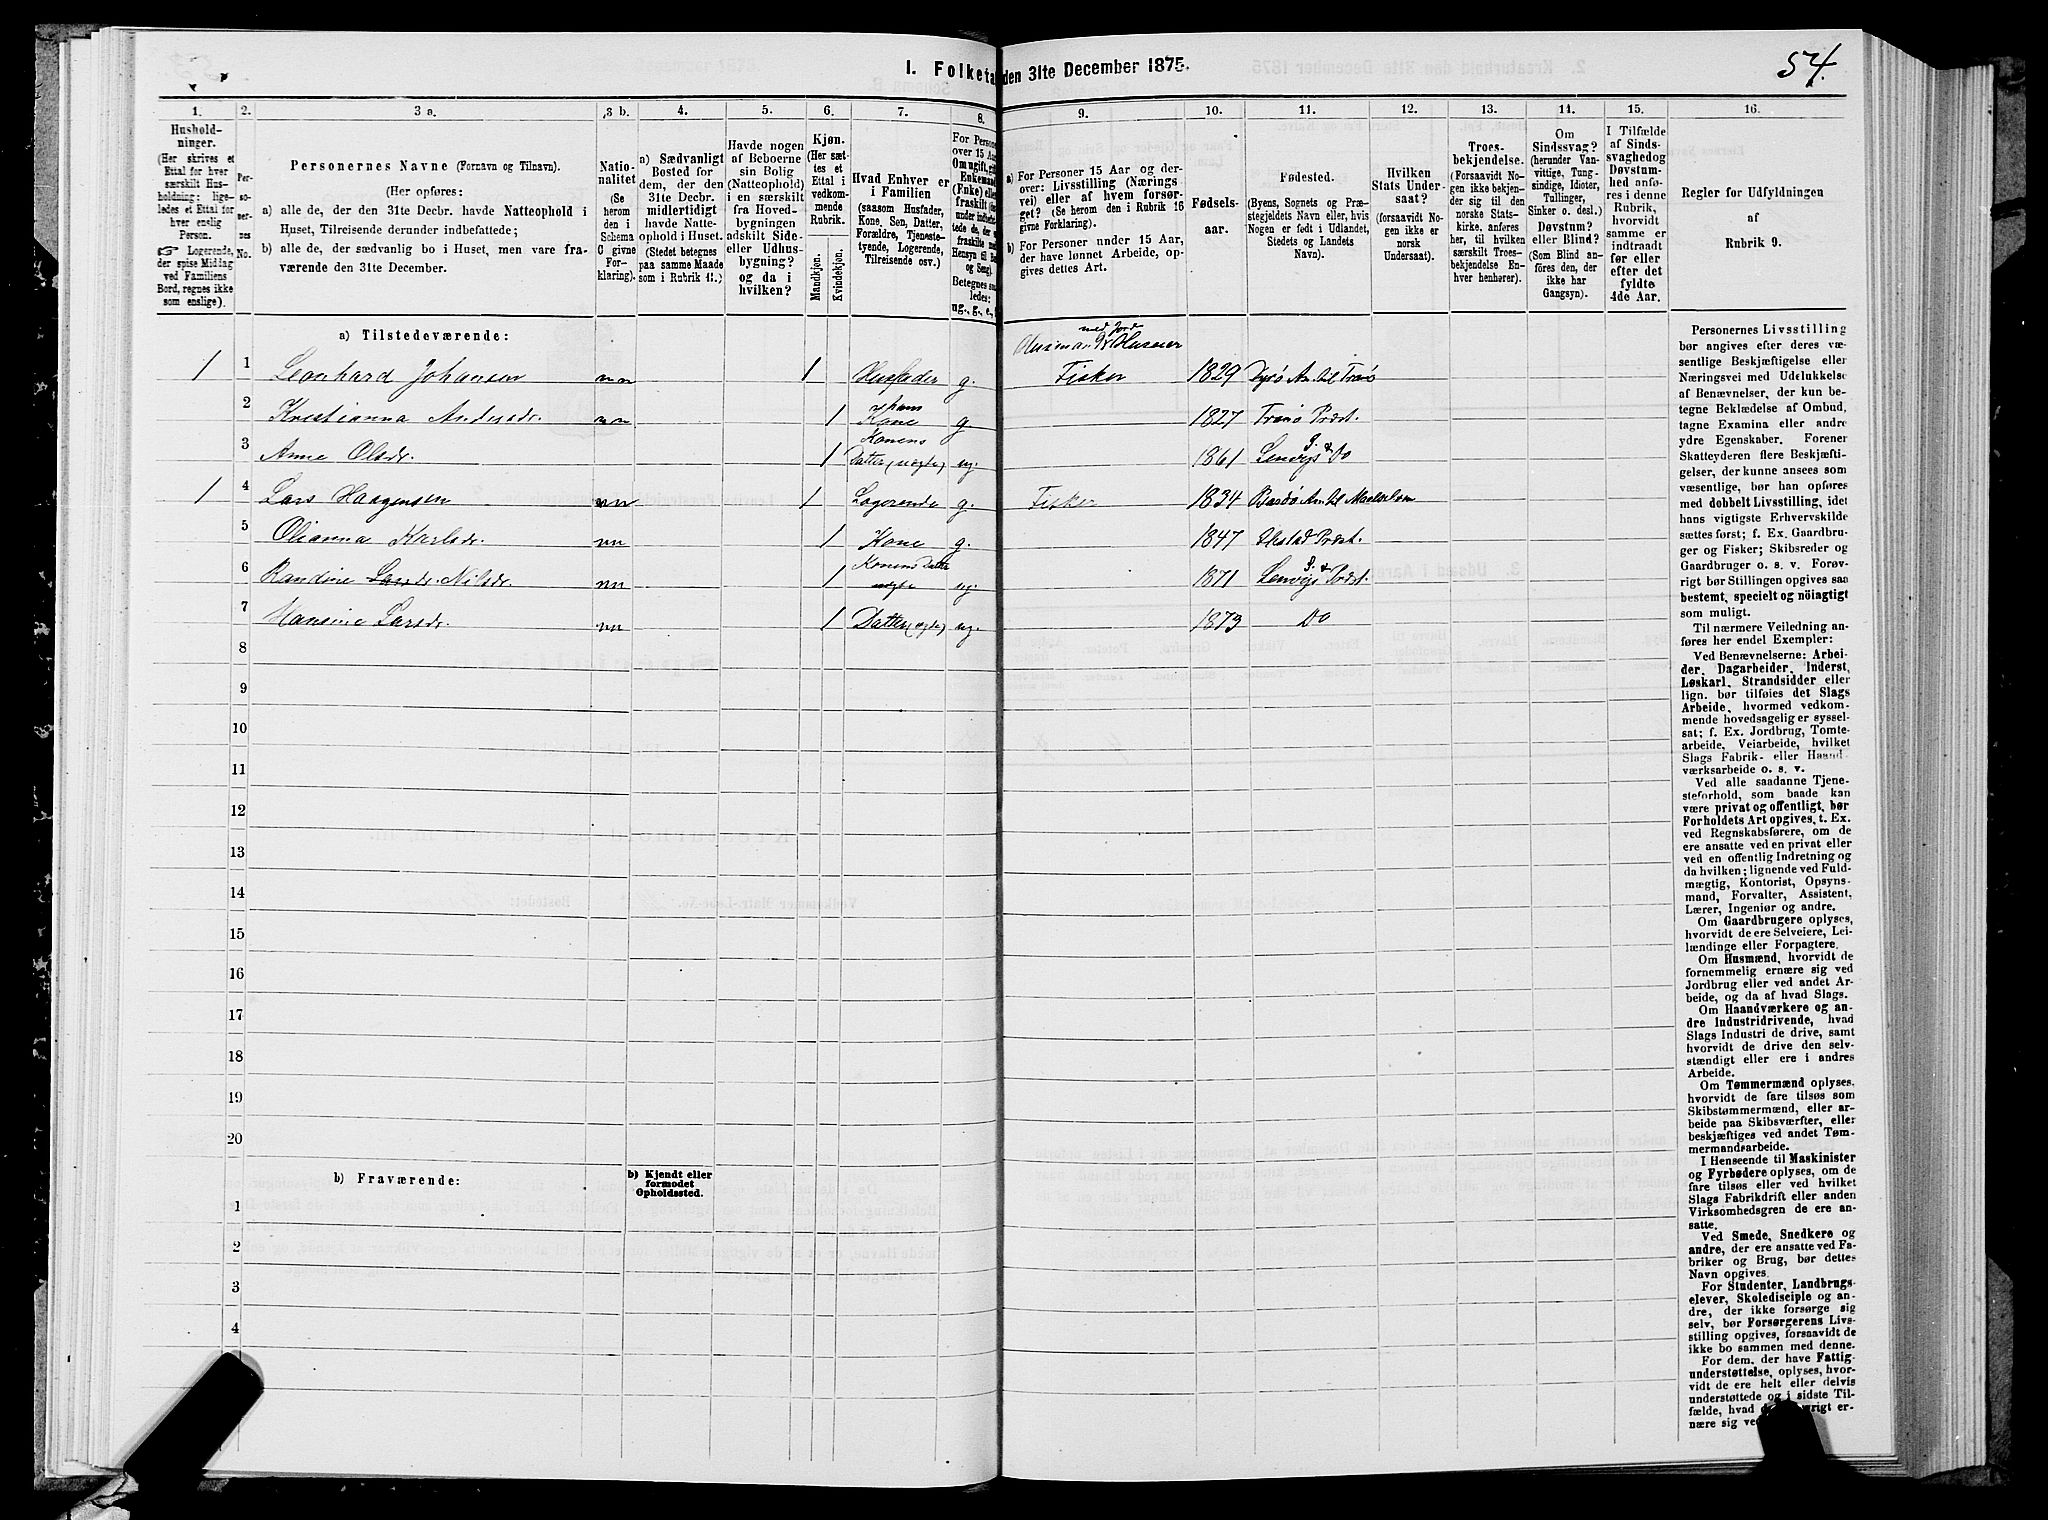 54.
I. Folketa den 31te December 1875.
1.
Hushold-
ninger.
(Her skrives et
Ettal for hver
særskilt Hus-
holdning; lige-
ledes et Ettal for
hver enslig
Person.
☞ Logerende,
der spise Middag
ved Familiens
Bord, regnes ikke
som enslige).
2.
Per-
so-
ner-
nes
No.
3 a.
Personernes Navne (Fornavn og Tilnavn).
(Her opføres:
a) alle de, der den 31te Decbr. havde Natteophold i
Huset, Tilreisende derunder indbefattede;
b) alle de, der sædvanlig bo i Huset, men vare fra-
værende den 31te December.
3 b.
Natio-
nalitet
(Se
herom
den i
Schema
C givne
For-
klaring).
4.
a) Sædvanligt
Bosted for
dem, der den
31te Decbr.
midlertidigt
havde Natte-
ophold i Huset.
(Stedet betegnes
paa samme Maade
som i Rubrik 11.)
5.
Havde nogen
af Beboerne
sin Bolig
(Natteophold)
i en særskilt
fra Hoved-
bygningen
adskilt Side-
eller Udhus-
bygning?
og da i
hvilken?
6.
Kjøn.
(Her sæt-
tes et
Ettal i
vedkom-
mende
Rubrik.
Mandkjøn.
Kvindekjøn.
7.
Hvad Enhver er
i Familien
(saasom Husfader,
Kone, Søn, Datter,
Forældre, Tjeneste-
tyende, Logerende,
Tilreisende osv.)
8.
For Persone
over 15 Aar
Om ugift, gift
Enkemand
(Enke) elle
fraskilt
Betegnes saa
ledes:
ug., g., e.,
9.
a) For Personer 15 Aar og der-
over: Livsstilling (Nærings
vei) eller af hvem forsør-
get? (Se herom den i Rubrik 16
givne Forklaring).
b) For Personer under 15 Aar,
der have lønnet Arbeide, op-
gives dettes Art.
10.
Fødsels-
aar.
11.
Fødested.
(Byens, Sognets og Præ-
stegjeldets Navn eller, hvis
Nogen er født i Udlandet,
Stedets og Landets
Navn).
12.
Hvilken
Stats Under-
saat?
(forsaavidt No-
gen ikke er
norsk
Undersaat).
13.
Troes-
bekjendelse.
(Forsaavidt No-
gen ikke bekjen-
der sig til den
norske Stats-
kirke, anføres
her, til hvilken
særskilt Troes-
bekjendelse En-
hver henhører).
14.
Om
Sindssvag?
(herunder Van-
vittige, Tung-
sindige, Idioter,
Tullinger,
Sinker o. desl.)
Døvstum?
eller Blind?
(Som Blind an-
føres den, der
ikke har
Gangsyn).
15.
I Tilfælde
af Sinds-
svaghed og
Døvstum-
hed anfø-
res i denne
Rubrik,
hvorvidt
samme er
indtraadt
før eller
efter det
fyldte
4de Aar.
16.
Regler for Udfyldningen
af
Rubrik 9.
a) Tilstedeværende:
med Jord
1 1 Leonhard Johansen nn 1 Husfader g. Fisker 1829 Dyrø An til Tranø
2 Kristianna Andersdr. nn 1 hans Kone g. 1827 Tranø Præst.
3 Anne Olsdr. 1 Konens Datter (uægte) ug. 1861 Lenvigs S. & Do
1 4 Lars Haagensen nn 1 Logerende g. Fisker 1834 Bardø An til
5 Olianna Karlsdr. nn 1 Kone g. 1847 Ibestad Præst.
6 Randine Larsdr. Nilsdr. nn 1 Konens Datter uægte ug 1871 Lenvigs S. & Præst.
7 Hansine Larsdr. nn 1 Datter (ægte) ug. 1873 Do
8
9
10
11
12
13
14
15
16
17
18
19
20
b) Fraværende:
b) Kjendt eller
formodet
Opholdssted.
1
2
3
4
Personernes Livsstilling
bør angives efter deres væ-
sentlige Beskjæftigelse eller
Næringsvei med Udelukkelse
af Benævnelser, der kun be-
tegne Beklædelse af Ombud,
tagne Examina eller andre
ydre Egenskaber. Forener
Skatteyderen flere Beskjæfti-
gelser, der kunne ansees som
væsentlige, bør han opføres
med dobbelt Livsstilling, idet
hans vigtigste Erhvervskilde
sættes først; f. Ex. Gaardbru-
ger og Fisker; Skibsreder og
Gaardbruger o. s. v. Forøv-
rigt bør Stillingen opgives saa
bestemt, specielt og nöiagtigt
som muligt.
Til nærmere Veiledning an-
føres her endel Exempler:
Ved Benævnelserne: Arbei-
der, Dagarbeider, Inderst,
Løskarl, Strandsidder eller
lign. bør tilføies det Slags
Arbeide, hvormed vedkom-
mende hovedsagelig er syssel-
sat; f. Ex. Jordbrug, Tomte-
arbeide, Veiarbeide, hvilket
Slags Fabrik- eller Haand
værksarbeide o. s. v.
Ved alle saadanne Tjene-
steforhold, som baade kan
være privat og offentligt, bør
Forholdets Art opgives, t. Ex.
ved Regnskabsførere, om de
ere ansatte ved en privat eller
ved en offentlig Indretning og
da hvilken; lignende ved Fuld-
mægtig, Kontorist, Opsyns-
mand, Forvalter, Assistent,
Lærer, Ingeniør og andre.
Om Gaardbrugere oplyses,
hvorvidt de ere Selveiere, Lei-
lændinge eller Forpagtere.
Om Husmænd, hvorvidt de
fornemmelig ernære sig ved
Jordbrug eller ved andet Ar-
beide, og da af hvad Slags.
Om Haandværkere og an-
dre Industridrivende, hvad
Slags Industri de drive, samt
hvorvidt de drive den selv-
stændigt eller ere i andres
Arbeide.
Om Tømmermænd oplyses,
hvorvidt de fare tilsøs som
Skibstømmermænd, eller ar-
beide paa Skibsværfter, eller
beskjæftiges ved andet Tøm-
mermandsarbeide.
I Henseende til Maskinister
og Fyrbødere oplyses, om de
fare tilsøs eller ved hvilket
Slags Fabrikdrift eller anden
Virksomhedsgren de ere an-
satte.
Ved Smede, Snedkere og
andre, der ere ansatte ved Fa-
briker og Brug, bør dettes
Navn opgives.
For Studenter, Landbrugs-
elever, Skoledisciple og an-
dre, der ikke forsørge sig
selv, bør Forsørgerens Livs-
stilling opgives, forsaavidt de
ikke bo sammen med denne.
For dem, der have Fattig-
understøttelse, oplyses, hvor-
vidt de ere helt eller delvis
understøttede og i sidste Til-
fælde, hvad rigt er-
nære sig ve